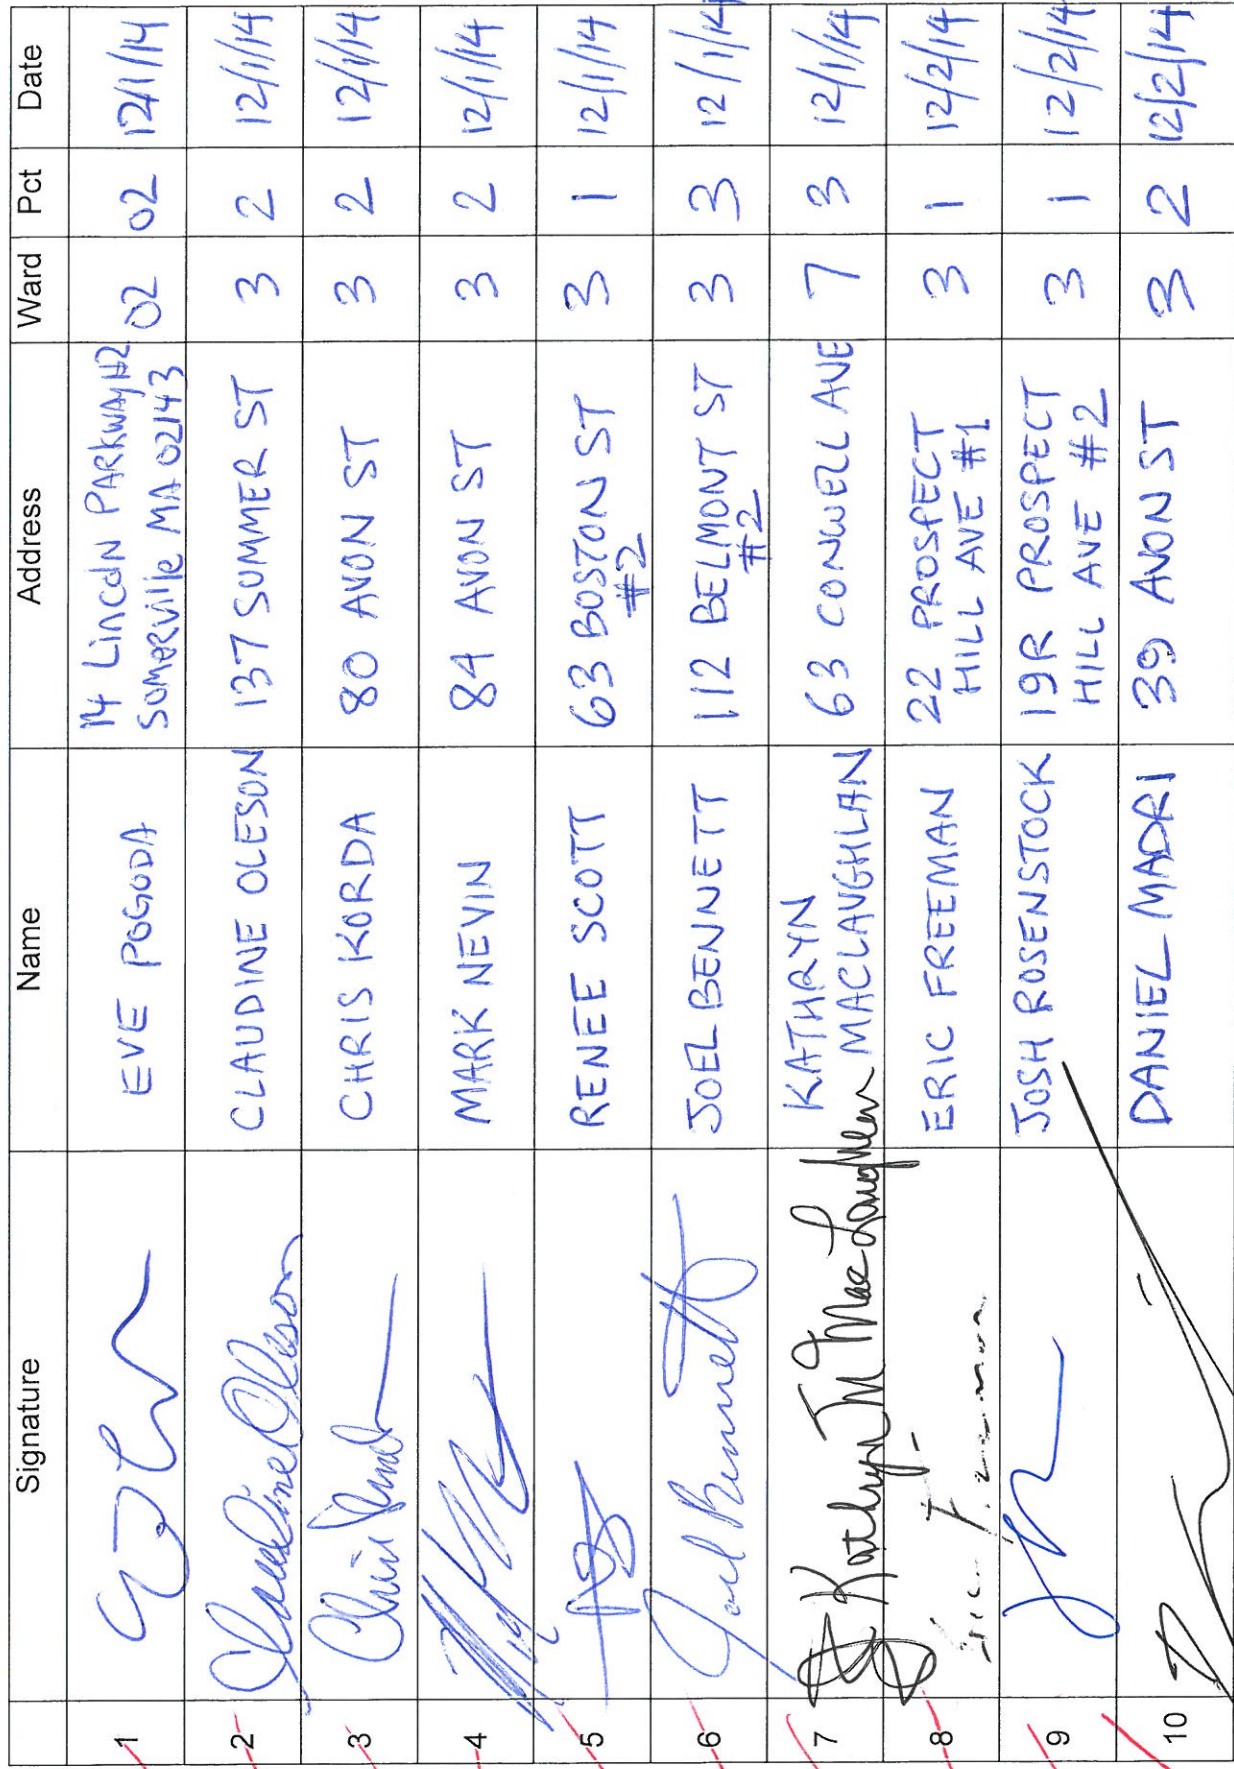 Signature Name Address Ward Pct Date
1 EVE POGODA 14 Lincoln PARKWAY #2 02 02 12/1/14
SOMERVille MA 02143
2 Claudine Oleson CLAUDINE OLESON 137 SUMMER ST 3 2 12/1/14
3 CHRIS KORDA 80 AVON ST 3 2 12/1/14
4 MARK NEVIN 84 AVON ST 3 2 12/1/14
5 RENEE SCOTT 63 BOSTON ST 3 1 12/1/14
#2
6 Joel Bennett JOEL BENNETT 112 BELMONT ST 3 3 12/1/14
#2
7 Kathryn M MacLaughlan KATHRYN 63 CONWELL AVE 7 3 12/1/14
MACLAUGHLAN
8 Eric Freeman ERIC FREEMAN 22 PROSPECT 3 1 12/2/14
HILL AVE #1
9 JOSH ROSENSTOCK 19R PROSPECT 3 1 12/2/14
HILL AVE #2
10 DANIEL MADRI 39 AVON ST 3 2 12/2/14